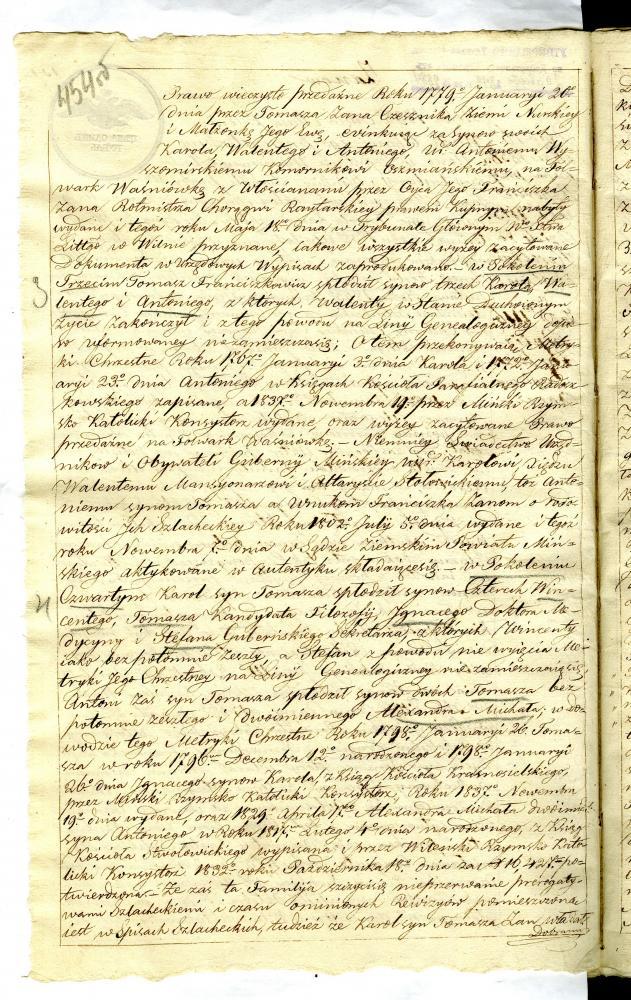 4545
Prawo wieczysto przedażne Roku 1779o Januaryi 20o
dnia przez Tomasza Zana Czesnika Ziemi Nurskiey
i Małżonkę Jego Ewę, ewinkując za Synow swoich
Karola, Walentego i Antoniego, Ur. Antoniemu Wy
szomirskiemu Komornikowi Oszmiańskiemu, na Fol-
wark Waśniówkę z Włościanami przez Oyca Jego Franciszka
Zana Rotmistrza Chorągwi Raytarskiey prawem Kupnym nabyty
wydane i tegoż roku Maja 18o dnia w Trybunale Głównym
Littgo w Wilnie przyznane, iakowe wszystkie wyżey zacytowane
Dokumenta w Urzędowych Wypisach zaprodukowano. – w Pokoleniu
3
Trzecim Tomasz Franciszkowicz spłodził synow trzech Karola, Wa-
lentego i Antoniego, z których Walenty w Stanie Duchownym
życie zakończył i z tego powodu na Liniy Genealogiczney dopie-
ro uformowaney niezamieszcza się; O tem przekonywaią Metry-
ki Chrzestne Roku 1767o Januaryi 3o dnia Karola i 1772o Janu-
aryi 23o dnia Antoniego w Księgach Kościoła Parafialnego Radosz
kowskiego zapisane, a 1837o Nowembra 19o przez Miński Rzym-
sko Katolicki Konsystorz wydane, oraz wyżey zacytowane Prawo
przedażne na Folwark Waśniówkę. – Niemniey Świadectwo Urzęd-
nikow i Obywateli Guberniy Mińskiey Karolowi Xiędzu
Walentemu Mansyonarzowi i Altaryście Stołowickiemu toż Anto-
niemu synom Tomasza a Wnukom Franciszka Zanom o rodo-
witości Ich Szlacheckiey Roku 1802o July 5o dnia wydane i tegoż
roku Nowembra dnia w Sądzie Ziemskim Powiatu Miń-
skiego aktykowane w Autentyku składaiące się – w Pokoleniu
4
Czwartym Karol syn Tomasza spłodził synow Czterech Win-
centego, Tomasza Kandydata Filozofij, Ignacego Doktora Me-
dycyny i Stefana Guberńskiego Sekretarza, z których Wincenty
iako bezpotomnie zeszły, a Stefan z powodu nie wyięcia Me-
tryki Jego Chrzestney na Liniy Genealogiczney nie zamieszczaią się
Antoni zaś syn Tomasza spłodził synow dwóch Tomasza bez
potomnie zeszłego i dwóimiennego Alexandra Michała; w do-
wodzie tego Metryki Chrzestne Roku 1798o Januaryi 26. Toma-
sza w roku 1796o Decembra 12o narodzonego i 1798o Januaryi
26o dnia Ignacego synow Karola, z Ksiąg Kościoła Krasnosielskiego,
przez Miński Rzymsko Katolicki Konsystorz, Roku 1837o Nowembra
19o dnia wydane, oraz 1829o Aprila Alexandra Michała dwóimien.
syna Antoniego w Roku 1817o Lutego 4o dnia narodzonego, z Ksiąg
Kościoła Stwołowickiego wypisana i przez Wileński Rzymsko Kato-
licki Konsystorz 1832o roku Października 18o dnia za N 16,427o po-
twierdzona. – Że zaś ta Familija szczyci się nieprzerwanie prerogaty-
wami Szlacheckiemi i czasu ominionych Rewizyow pomieszczoną
iest w Spisach Szlacheckich, tudzież że Karol syn Tomasza Zan władał
Dobrami